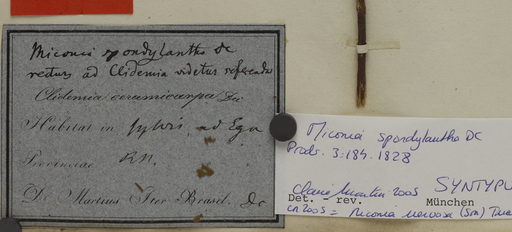 Miconia spondylantha DC
rectius ad Clidemia videtur referenda
Clidemia ceramicarpa DC
Habitat in sylvis, ad Ega
Provinciae R.N.
D. Martius Iter Brasil. DC
Miconia spondylantha DC
Prodr. 3:184. 1828
Claire Martin 2005 SYNTYPU
Det. - rev. München
CN2005 = Miconia nervosa (Sm) Tria